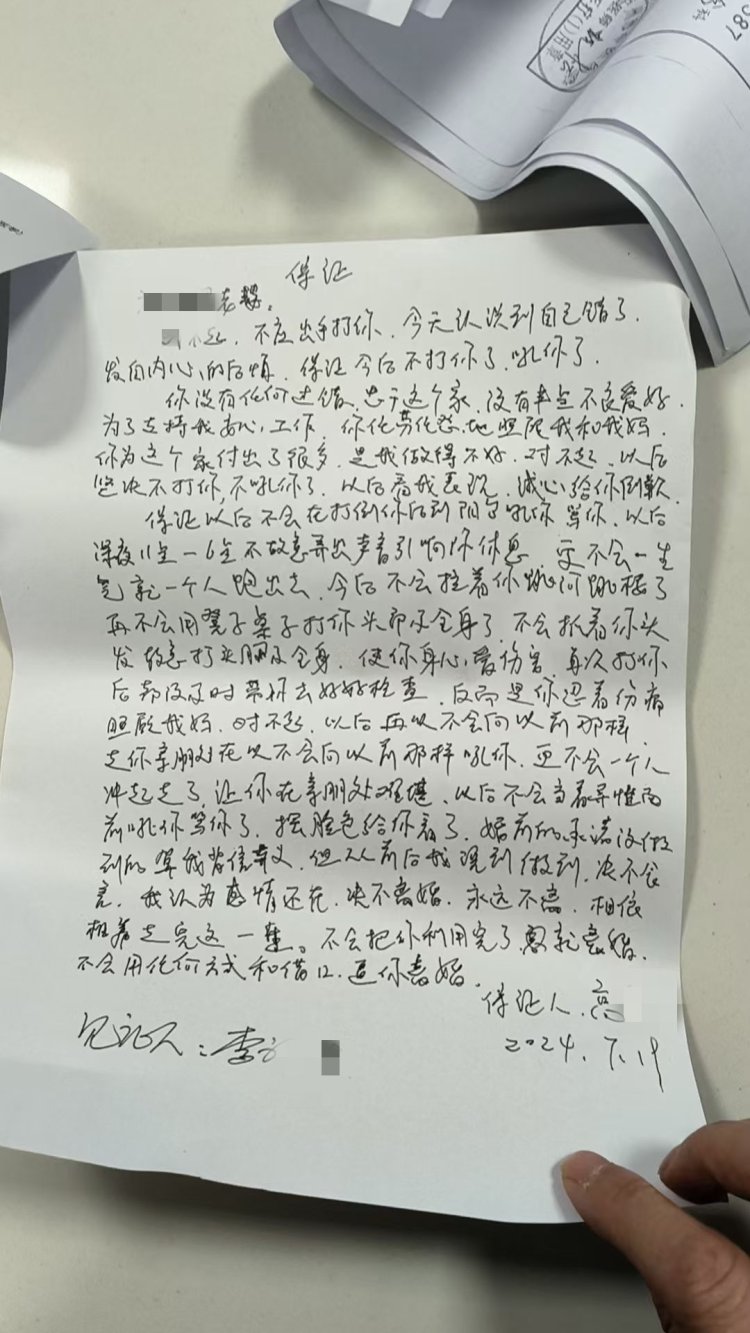 587
保证
老婆。
不起.不应出手打你.今天认识到自己错了.
发自内心的后悔.保证今后不打你了.吼你了.
你没有任何过错.忠于这个家.没有半点不良爱好.
为了支持我安心工作.你任劳任怨地照顾我和我妈.
你为这个家付出了很多.是我做得不好.对不起.以后
坚决不打你,不吼你了.以后看我表现.诚心给你倒歉.
保证以后不会在打倒你后到阳台吼你骂你.以后
深夜11点-6点不故意弄出声音引响你休息 更不会一生
气就一个人跑出去.今后不会拉着你跳河跳楼了
再不会用凳子桌子打你头部及全身了.不会抓着你头
发故意打头胸及全身.使你身心受伤害.每次打你
后都没及时带你去好好检查.反而是你忍着伤痛
照顾我妈.对不起.以后再以不会向以前那样.
走你亲朋处在以不会向以前那样吼你.更不会一个人
冲起走了,让你在亲朋处难堪.以后不会当着异性面
前吼你骂你了.摆脸色给你看了.婚前的承诺没做
到的算我背信弃义.但从前后我说到做到.决不食
言.我认为感情还在.决不离婚.永远不离.相依
相着走完这一辈。不会把你利用完了就离婚.
不会用任何方式和借口.逼你离婚.
保证人.高
见证人:李
2024.7.19